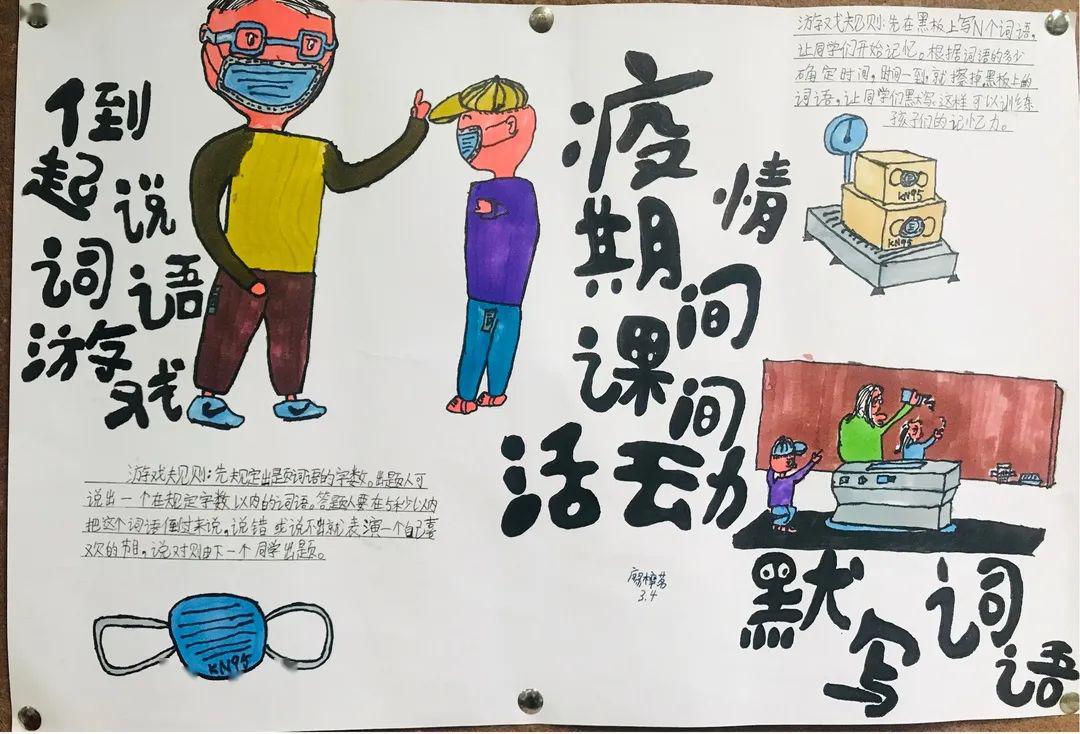 倒
起 说
词 语
游 戏
游戏规则:先规定出题词语的字数。出题人可
说出一个在规定字数以内的词语。答题人要在5秒以内
把这个词语倒过来说,说错或说不出就表演一个自己喜
欢的节目。说对则由下一个同学出题。
KN95
疫 情
期 间
课 间
活动
3.4
游戏规则:先在黑板上写N个词语,
让同学们开始记忆。根据词语的多少
确定时间,时间一到,就擦掉黑板上的
词语,让同学们默写,这样可以训练
孩子们的记忆力。
KN95
KN95
默 写 词 语